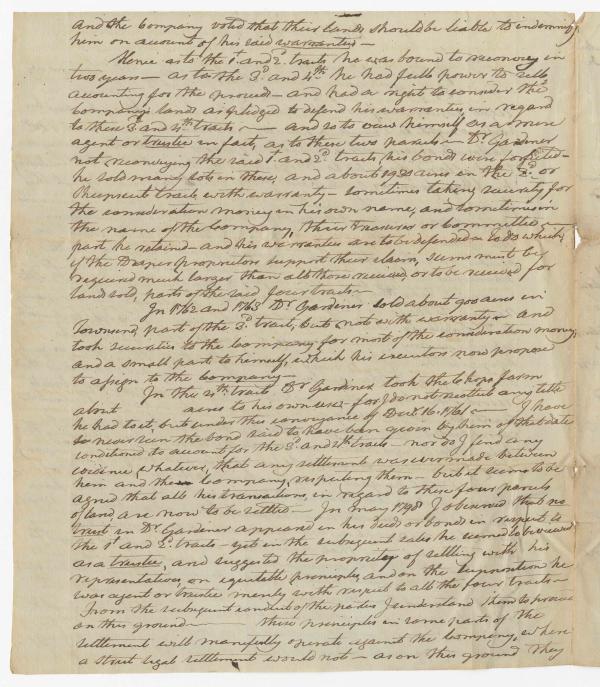 and the Company voted that their lands should be liable to indemnify
him on account of his said warranties —
Hence as to the 1st and 2d. tracts he was bound to reconvey in
two years — as to the 3d. and 4th. he had full power to sell
accounting for the proceeds — and had a right to consider the
Company's lands as pledged to defend his warranties, in regard
to these 3d. and 4th. tracts — and so to view himself as a mere
agent or trustee in fact, as to these two parcels — Dr. Gardiner
not reconveying the said 1st. and 2d. tracts, his bonds were forfeited —
he sold many lots in these, and about 1920 acres in the 3d. or
tract with warranty — sometimes taking security for
the consideration money in his own name, and sometimes in
the name of the Company, their treasurer or Committee —
part he retained — and his warranties are to be defended
if the Draper proprietors support their claim, sums must be
required much larger than all those received, or to be received for
land sold, parts of the said four tracts —
In 1762 and 1763 Dr. Gardiner sold about 900 acres in
Townsend, part of the 3d. tract, but not with warranty — and
took securities to the Company for most of the consideration money,
and a small part to himself, which his executors now propose
to assign to the Company —
In the 4th. tract Dr Gardiner took the Chops farm
about acres to his own use — for I do not recollect any title
he had to it, but under this conveyance of Decr. 16. 1761 — I have
never seen the bond said to have been given by him of that date
conditioned to account for the 3d. and 4th. tracts — nor do I find any
evidence, whatever, that any settlement was ever made between
him and the Company, respecting them — but it seems to be
agreed that all his transactions, in regard to these four parcels
of land, are now to be settled — In May 1798 I observed that no
trust in Dr. Gardiner appeared in his deeds or bonds in respect to
the 1st. and 2d. tracts — yet in the subsequent sales he seemed to be viewed
as a trustee, and suggested the propriety of settling with his
representatives, on equitable principles, and on the supposition he
was agent or trustee merely with respect to all the four tracts —
From the subsequent conduct of the parties I understand them to proceed
on this ground — these principles in some parts of the
settlement will manifestly operate against the Company, where
a strict legal settlement would not — as on this ground they